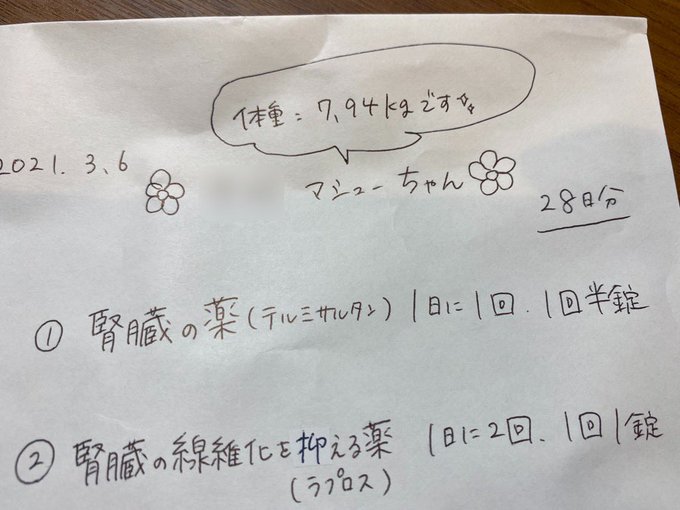 体重:7.94kgです
2021.3.6
マシューちゃん
28日分
① 腎臓の薬(テルミサルタン)1日に1回、1回半錠
② 腎臓の線維化を抑える薬 1日に2回、1回1錠
(ラプロス)